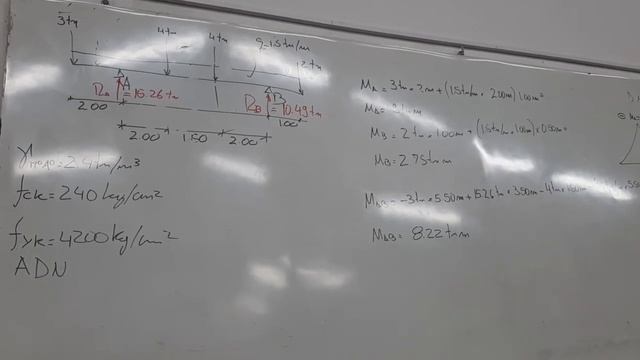 3tn
4tn
4tn
q=1.5tn/m
2tn
A
B
RA=15.26tn
RB=10.49tn
2.00
1.00
2.00
1.50
2.00
γ =2.4tn/m³
fck=240kg/cm²
fyk=4200kg/cm²
ADN
MA=3tn×2m+(1.5tn/m×2.00m)1.00m=
MA=
MB=2tn×1.00m+(1.5tn/m×1.00m)×0.50m=
MB=2.75tnm
MAB=-3tn×5.50m+15.26tn×3.50m-4tn×1.50m
MAB=8.22tnm